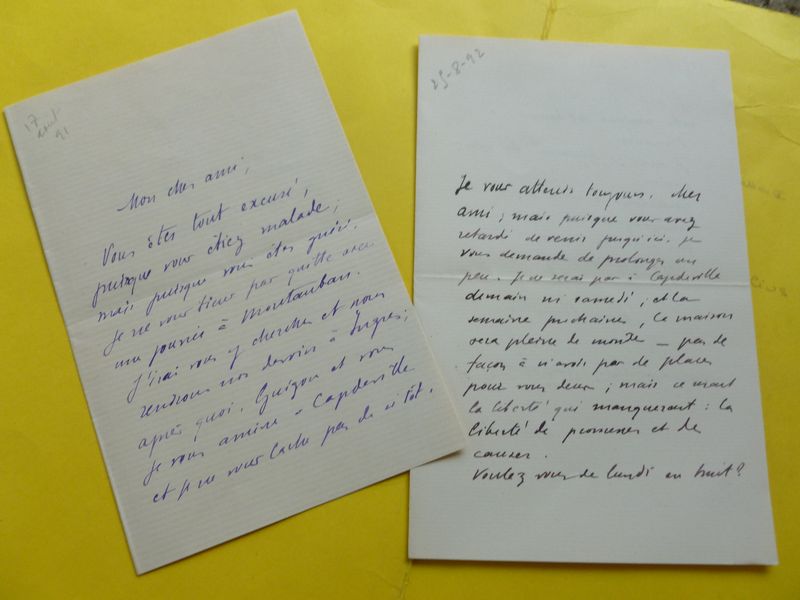 17
aout
91
Mon cher ami,
Vous êtes tout excusé,
puisque vous étiez malade ;
mais puisque vous êtes guéri.
Je ne vous tiens pas quitte avec
une journée à Montauban.
J'irai vous y chercher et nous
rendrons nos devoirs à Ingres ;
après quoi, et vous
je vous amène à Capdeville
et je ne vous lache pas de si tôt.
25-8-92
Je vous attends toujours, cher
ami ; mais puisque vous avez
retardé de venir jusqu'ici, je
vous demande de prolonger un
peu. Je ne serai pas à Capdeville
demain ni samedi ; et la
semaine prochaine, la maison
sera pleine de monde — pas de
façon à n'avoir pas de place
pour vous deux ; mais ce serait
la liberté qui manquerait : la
liberté de promener et de
causer.
Voulez vous de lundi en huit ?